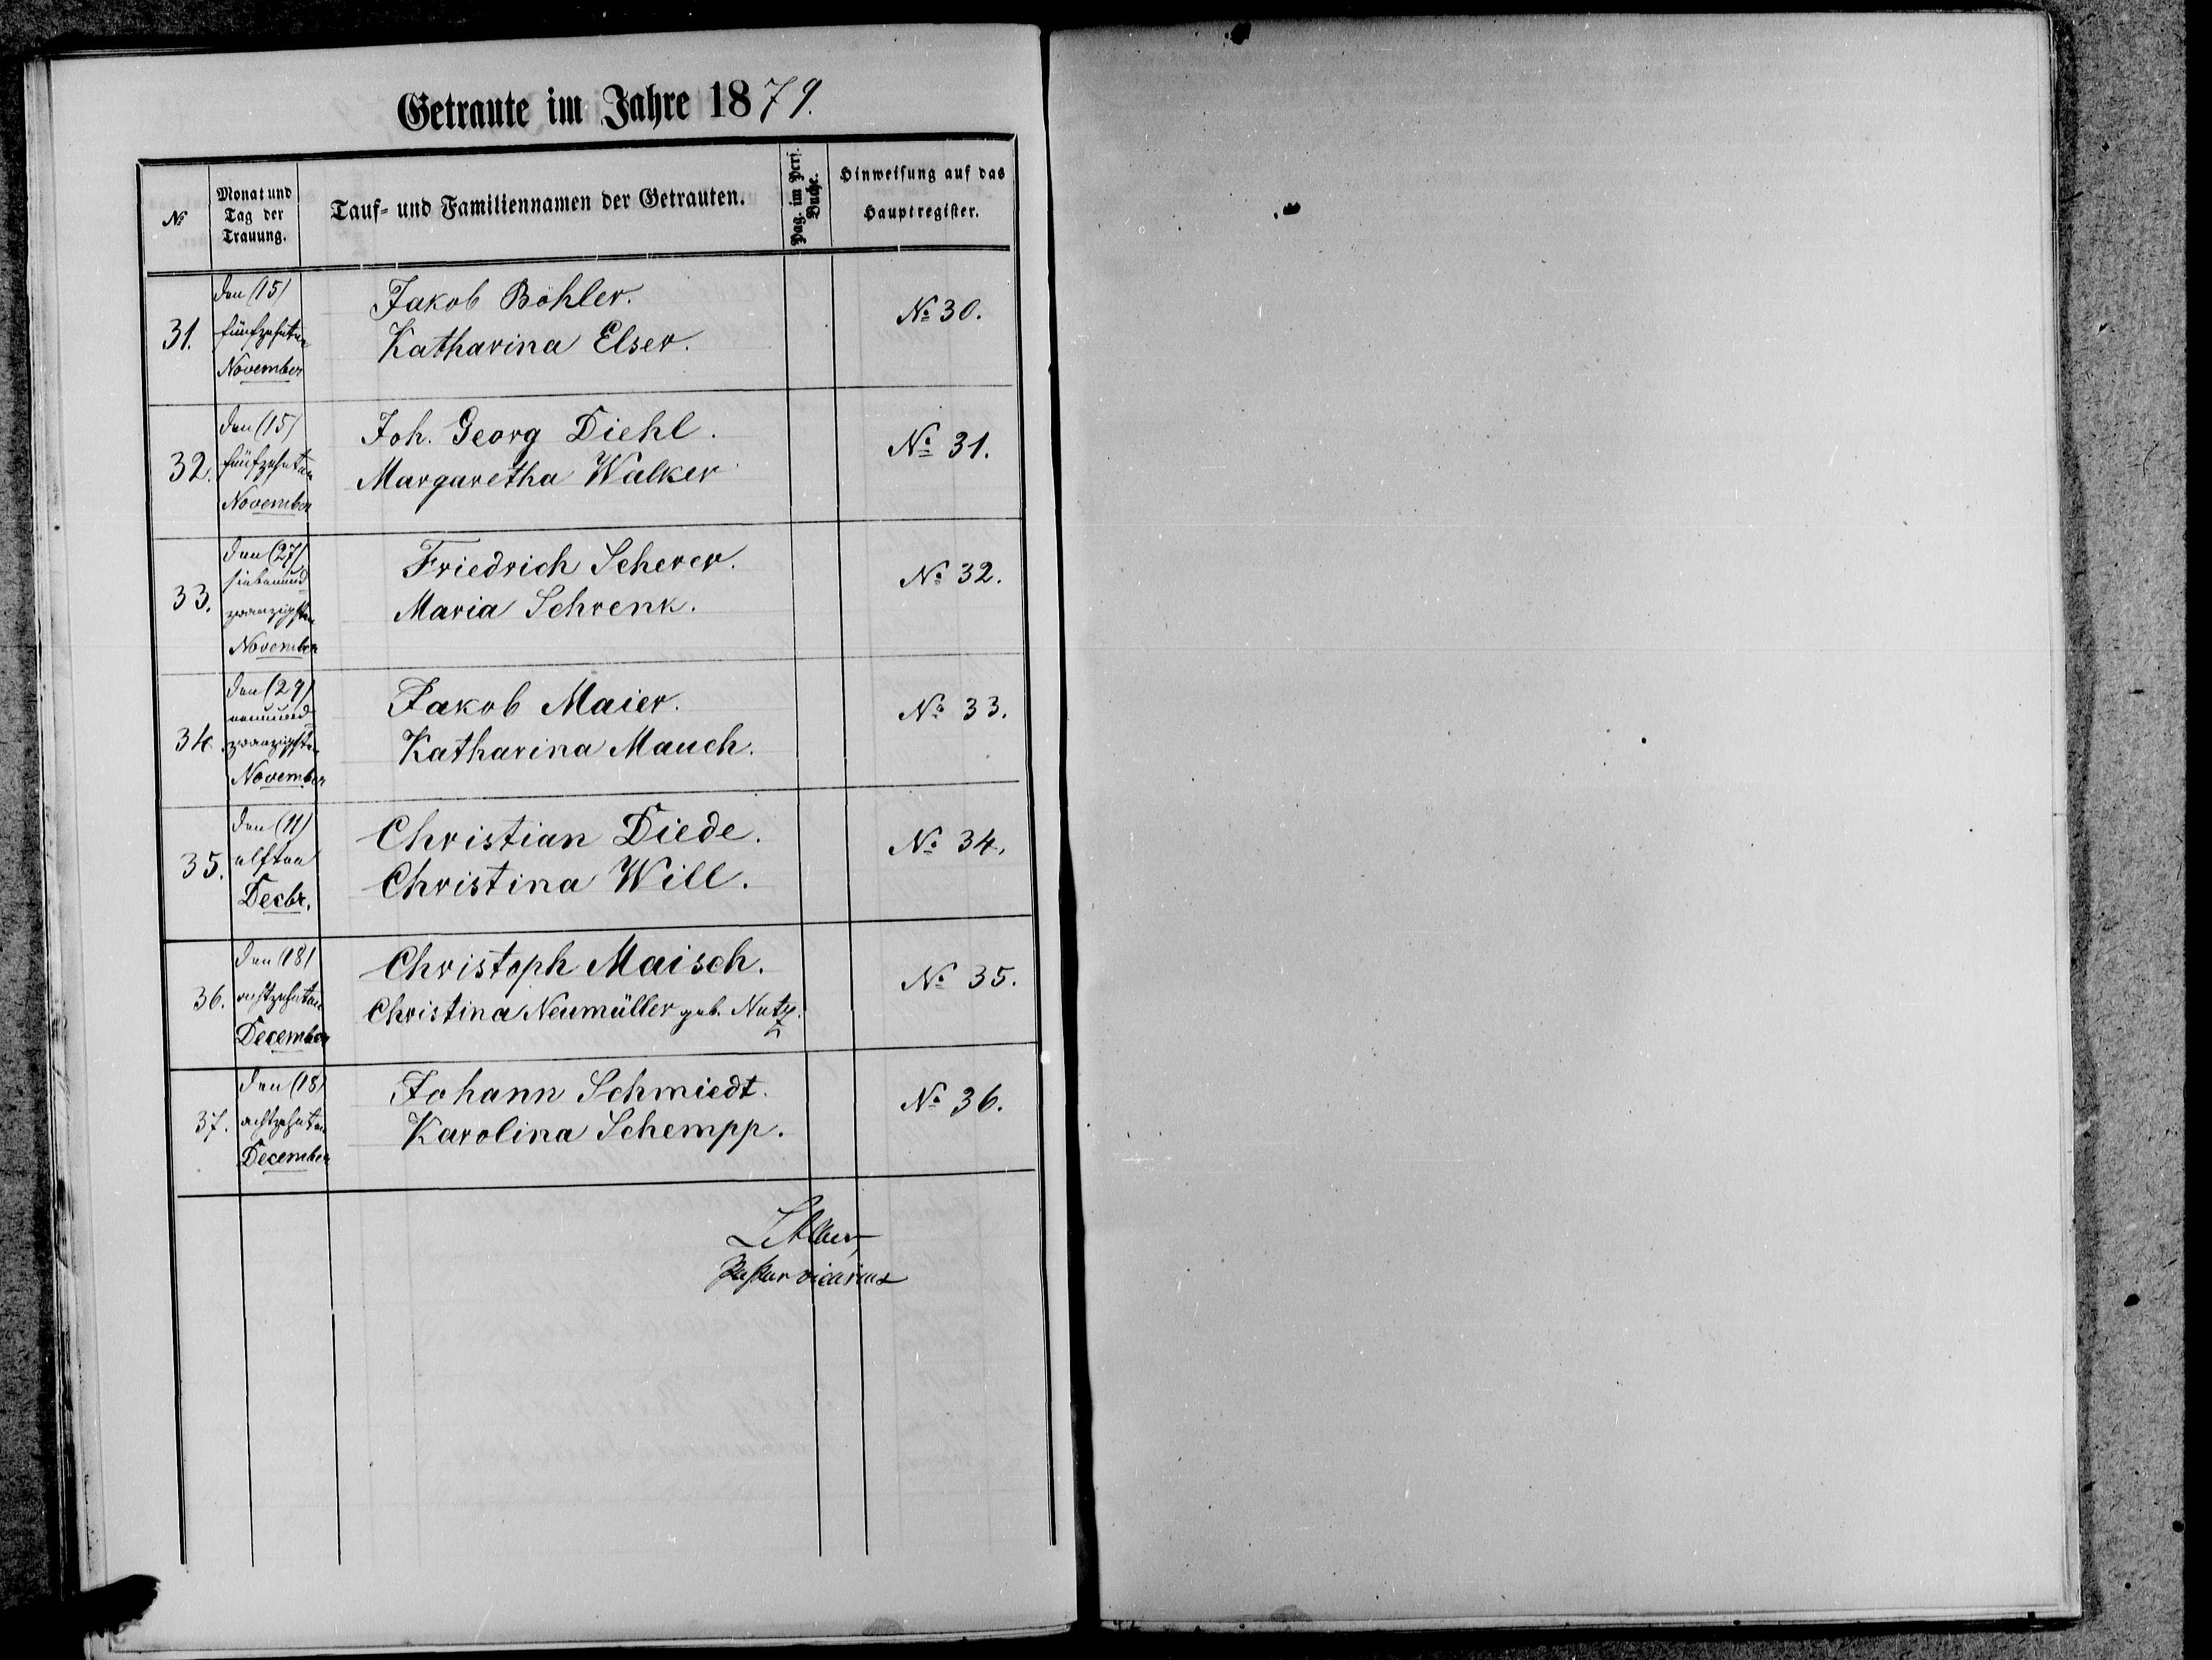 Getraute im Jahre 1879.
№
Monat und
Tag der
Trauung.
Tauf- und Familiennamen der Getrauten.
Pag. im Pers.
Buche.
Hinweisung auf das
Hauptregister.
31.
den (15)
fünfzehnten
November
Jakob Böhler.
Katharina Elser.
№ 30.
32.
den (15)
fünfzehnten
November
Joh. Georg Diehl.
Margaretha Walker
№ 31.
33.
den (27)
siebenund
zwanzigsten
November
Friedrich Scherer.
Maria Schrenk.
№ 32.
34.
den (29)
neunund
zwanzigsten
November
Jakob Maier.
Katharina Mauch.
№ 33.
35.
den (11)
elften
Decbr.
Christian Diede.
Christina Will.
№ 34.
36.
den (18)
achtzehnten
December
Christoph Maisch.
Christina Neumüller geb. Nutz.
№ 35.
37.
den (18)
achtzehnten
December
Johann Schmiedt.
Karolina Schempp.
№ 36.
Pastor vicarius